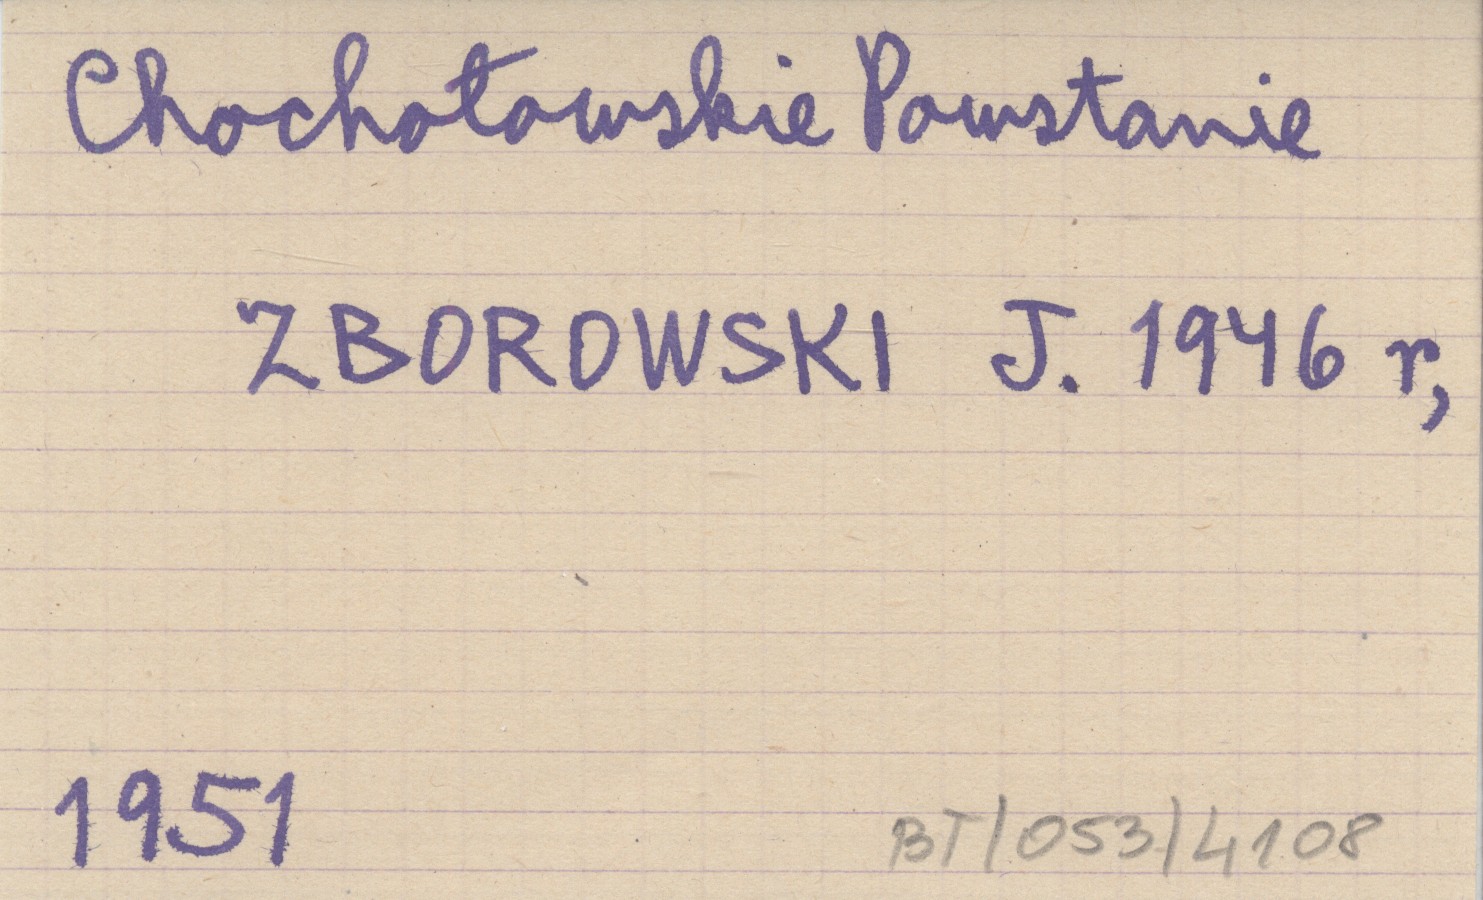 Chochołowskie Powstanie
ZBOROWSKI J. 1946 r,
1951
BT/053/4108